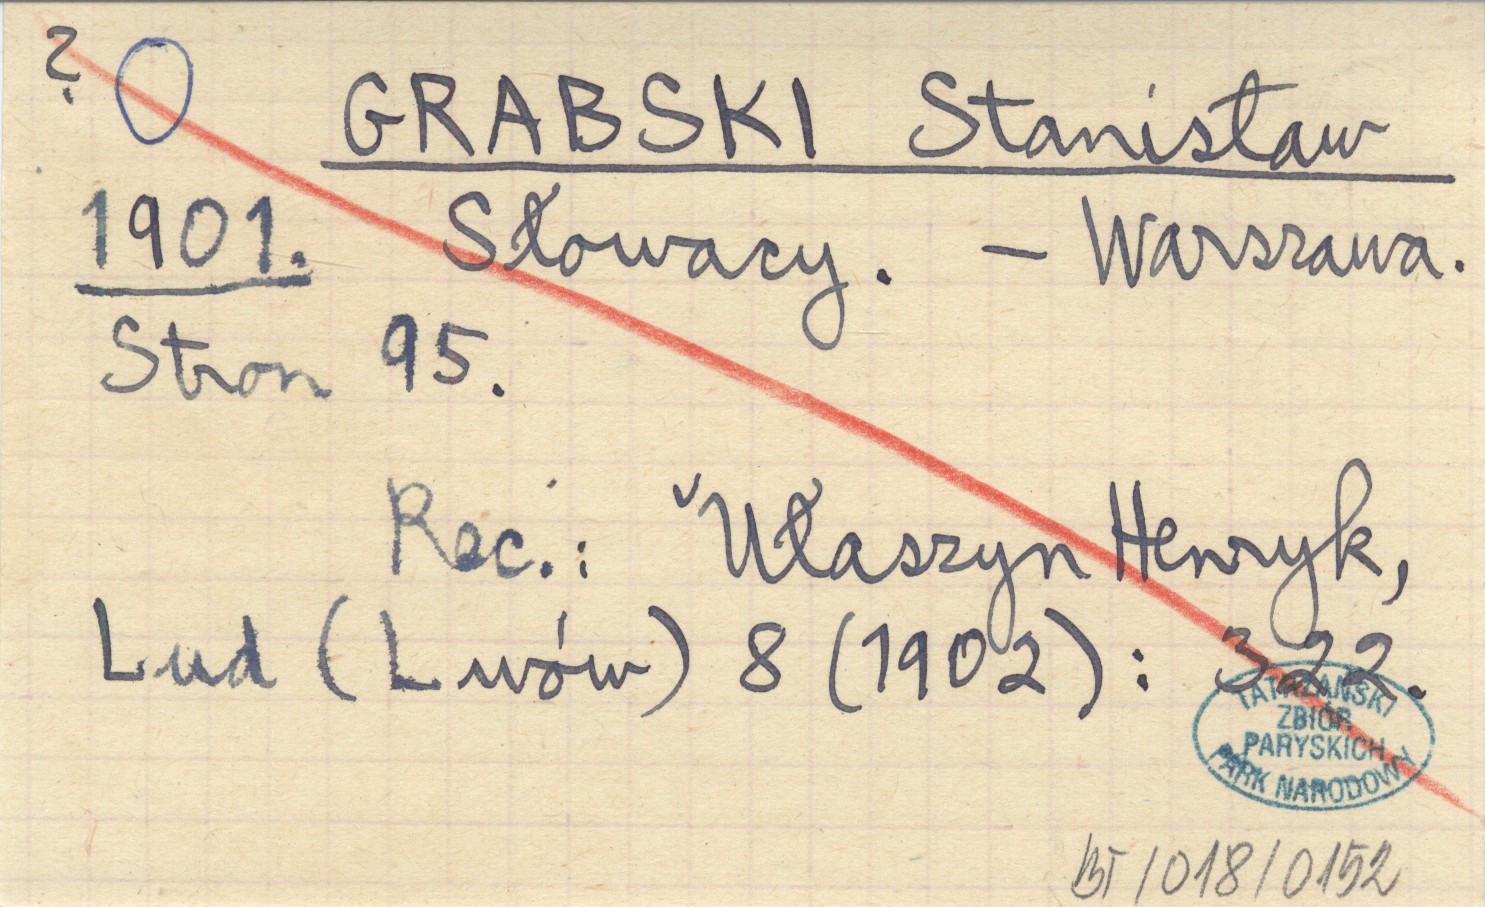 ?
GRABSKI Stanisław
1901. Słowacy. – Warszawa.
Stron 95.
Rec.: Ułaszyn Henryk,
Lud (Lwów) 8 (1902): 322.
TATRZAŃSKI
ZBIÓR
PARYSKICH
PARK NARODOWY
BT/018/0152